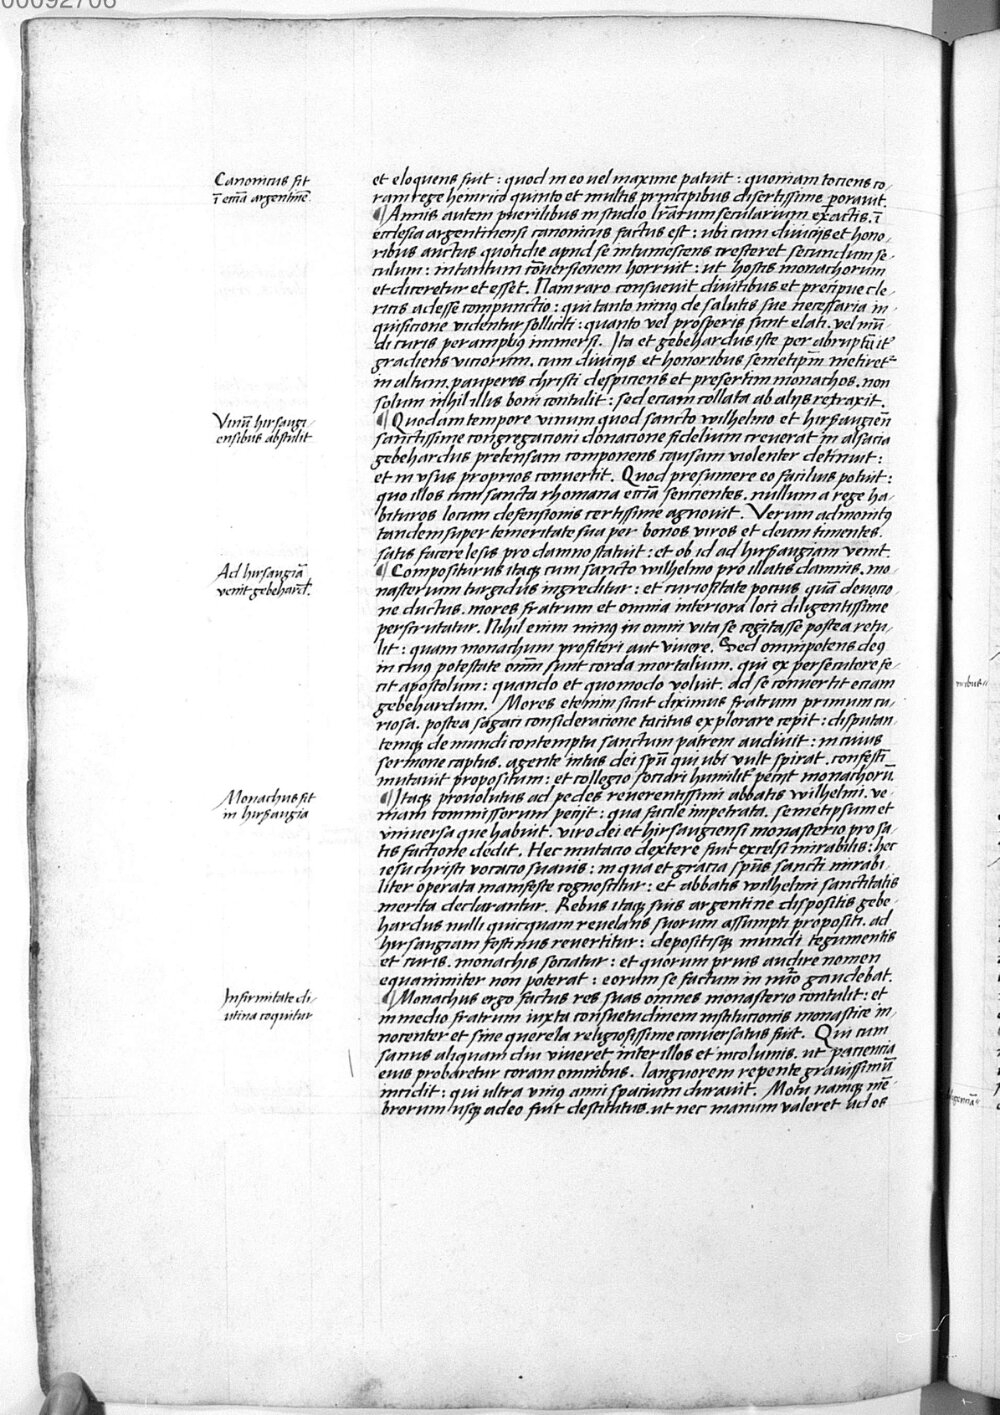 00092706
Canonicus fit
ī ecciā argentineñ.
et eloquens fuit : quod in eo vel maxime patuit : quoniam tociens co-
ram rege heinrico quinto et multis principibus disertissime perorauit.
¶ Annis autem puerilibus in studio lr̄arum secularium exactis. ī
ecclesia argentinensi canonicus factus est : ubi cum diuicijs et hono-
ribus auctus quotidie apud se intumescens cresteret secundum se-
culum : intantum cōuersionem horruit : ut hostis monachorum
et diceretur et esset. Nam raro consueuit diuitibus et precipue cle-
ricis adesse compunctio : qui tanto minꝰ de salutis sue necessaria in-
quisicione videntur solliciti : quanto vel prosperis sunt elati. vel mū-
di curis per amplius immersi. Ita et gebehardus iste per abruptū it
gradiens viciorum. cum diuicijs et honoribus semetipm̄ metiret
in altum. pauperes christi despiciens et presertim monachos. non
solum nihil illis boni contulit : sed eciam collata ab alijs retraxit.
Vinū hirsaugi-
ensibus abstulit
¶ Quodam tempore vinum quod sancto wilhelmo et hirsaugieñ
sanctissime congregacioni donacione fidelium creuerat in alsacia
gebehardus pretensam componens causam violenter detinuit :
et in vsus proprios conuertit. Quod presumere eo facilius potuit :
quo illos cum sancta rhomana ecciā sencientes. nullum a rege ha-
bituros locum defensionis certissime agnouit. Verum admonitꝰ
tandem super temeritate sua per bonos viros et deum timentes.
satis facere lesis pro damno statuit : et ob id ad hirsaugiam venit.
Ad hirsaugiā
venit gebehard.
¶ Compositurus itaqꝫ cum sancto wilhelmo pro illatis damnis. mo-
nasterium turgidus ingreditur : et curiositate pocius quā deuocio-
ne ductus. mores fratrum et omnia interiora loci diligentissime
perscrutatur. Nihil enim minꝰ in omni vita se cogitasse postea retu-
lit : quam monachum profiteri aut viuere. Sed omnipotens deꝰ
in cuiꝰ potestate omī sunt corda mortalium. qui ex persecutore fe-
cit apostolum : quando et quomodo voluit. ad se conuertit eciam
gebehardum. Mores etenim sicut diximus fratrum primum cu-
riosa. postea sagaci consideracione tacitus explorare cepit : disputan-
temqꝫ de mundi contemptu sanctum patrem audiuit : in cuius
sermone captus. agente intus dei spū qui ubi vult spirat. confestī
mutauit propositum : et collegio sociari humilitꝰ peciit monachorū.
Monachus fit
in hirsaugia
¶ Itaqꝫ prouolutus ad pedes reuerentissimi abbatis wilhelmi. ve-
niam commissorum peciit : qua facile impetrata. semetipsum et
vniuersa que habuit. viro dei et hirsaugiensi monasterio pro sa-
tis factione dedit. Hec mutacio dextere fuit excelsi mirabilis : hec
iesu christi vocacio suauis : in qua et gracia spūs sancti mirabi-
liter operata manifeste cognoscitur : et abbatis wilhelmi sanctitatis
merita declarantur. Rebus itaqꝫ suis argentine dispositis gebe-
hardus nulli quicquam reuelans suorum assumpti propositi. ad
hirsaugiam festinus reuertitur : depositisqꝫ mundi tegumentis
et curis. monachis sociatur : et quorum prius audire nomen
equanimiter non poterat : eorum se factum in nūo gaudebat.
Infirmitate di-
utina coquitur
¶ Monachus ergo factus res suas omnes monasterio contulit : et
in medio fratrum iuxta consuetudinem institucionis monastice in-
nocenter et sine querela religiosissime conuersatus fuit. Qui cum
sanus aliquam diu viueret inter illos et incolumis. ut paciencia
eius probaretur coram omnibus. languorem repente grauissimū
incidit : qui ultra vniꝰ anni spacium durauit. Motu namqꝫ mē-
brorum usqꝫ adeo fuit destitutus. ut nec manum valeret ad os